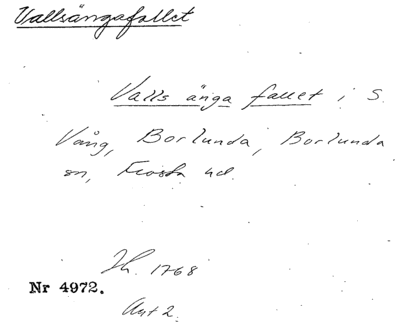 Vallsängafallet
Valls änga fallet i S.
Vång, Borlunda, Borlunda
sn, Frosta hd.
Ih. 1768
Nr 4972.
Akt 2.